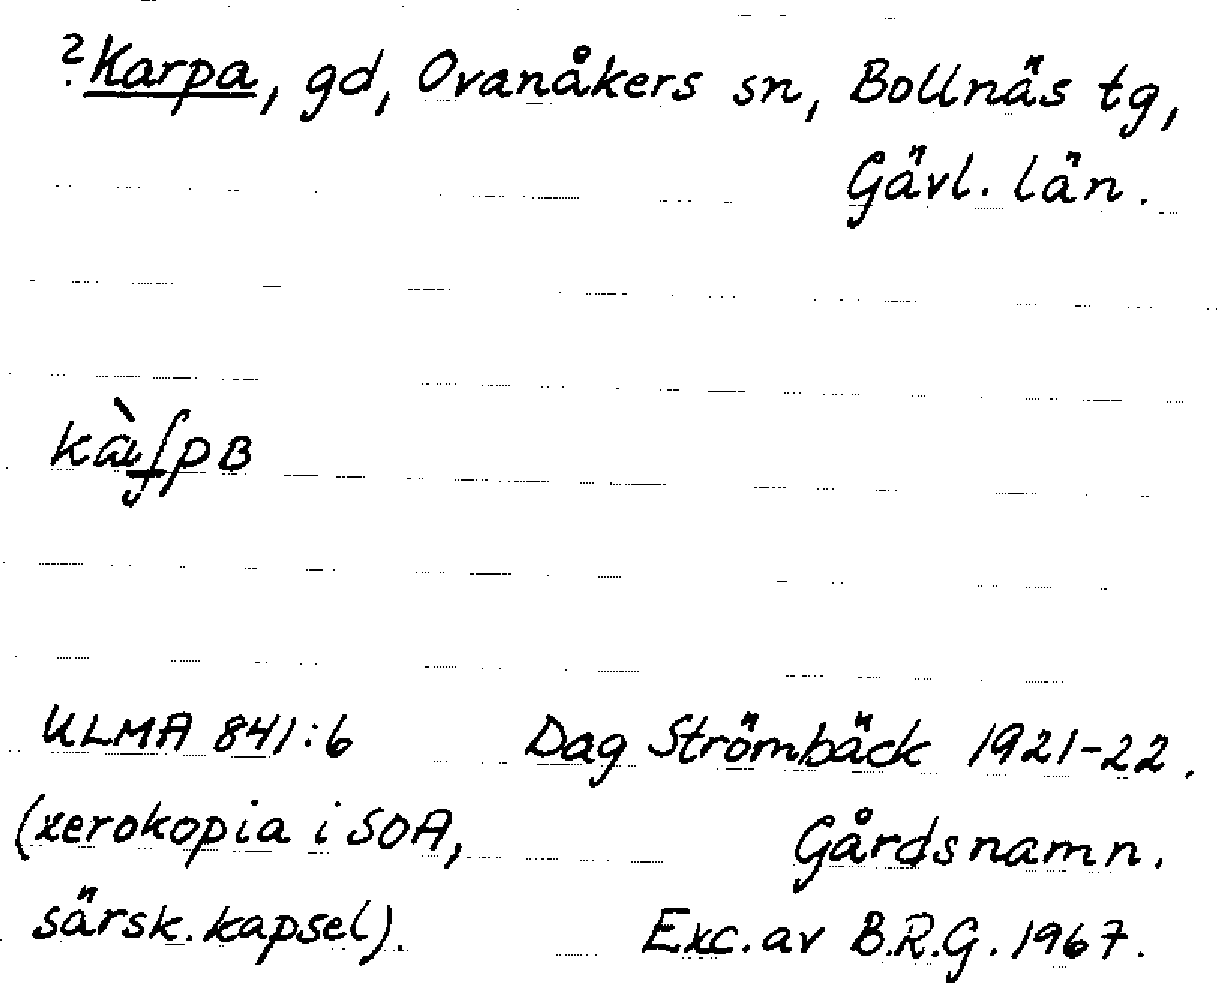 ?Karpa, gd, Ovanåkers sn, Bollnäs tg,
Gävl. län.
ULMA 841:6 Dag Strömbäck 1921-22.
(xerokopia i SOA, Gårdsnamn.
särsk. kapsel). Exc. av B.R.G. 1967.